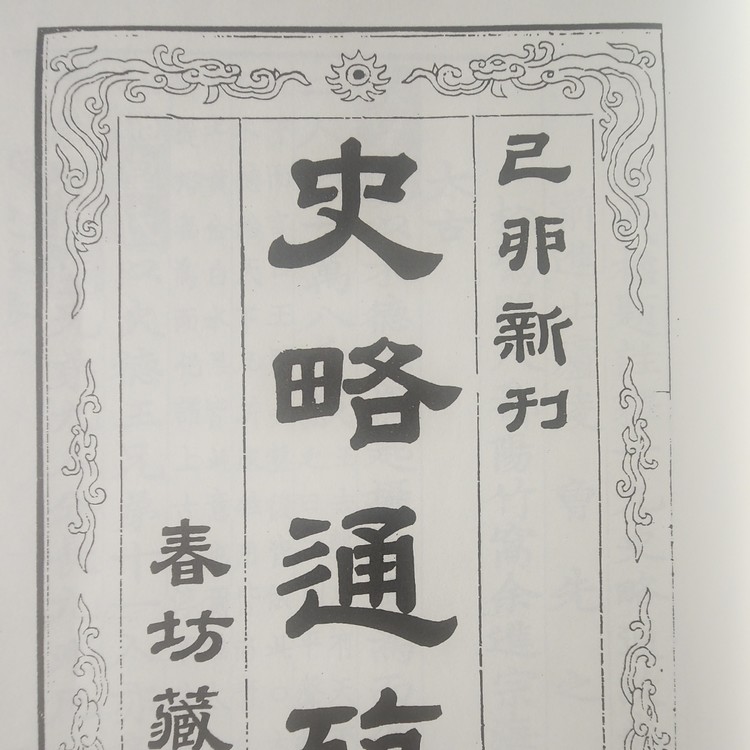 己卯新刊
史略通
春坊藏